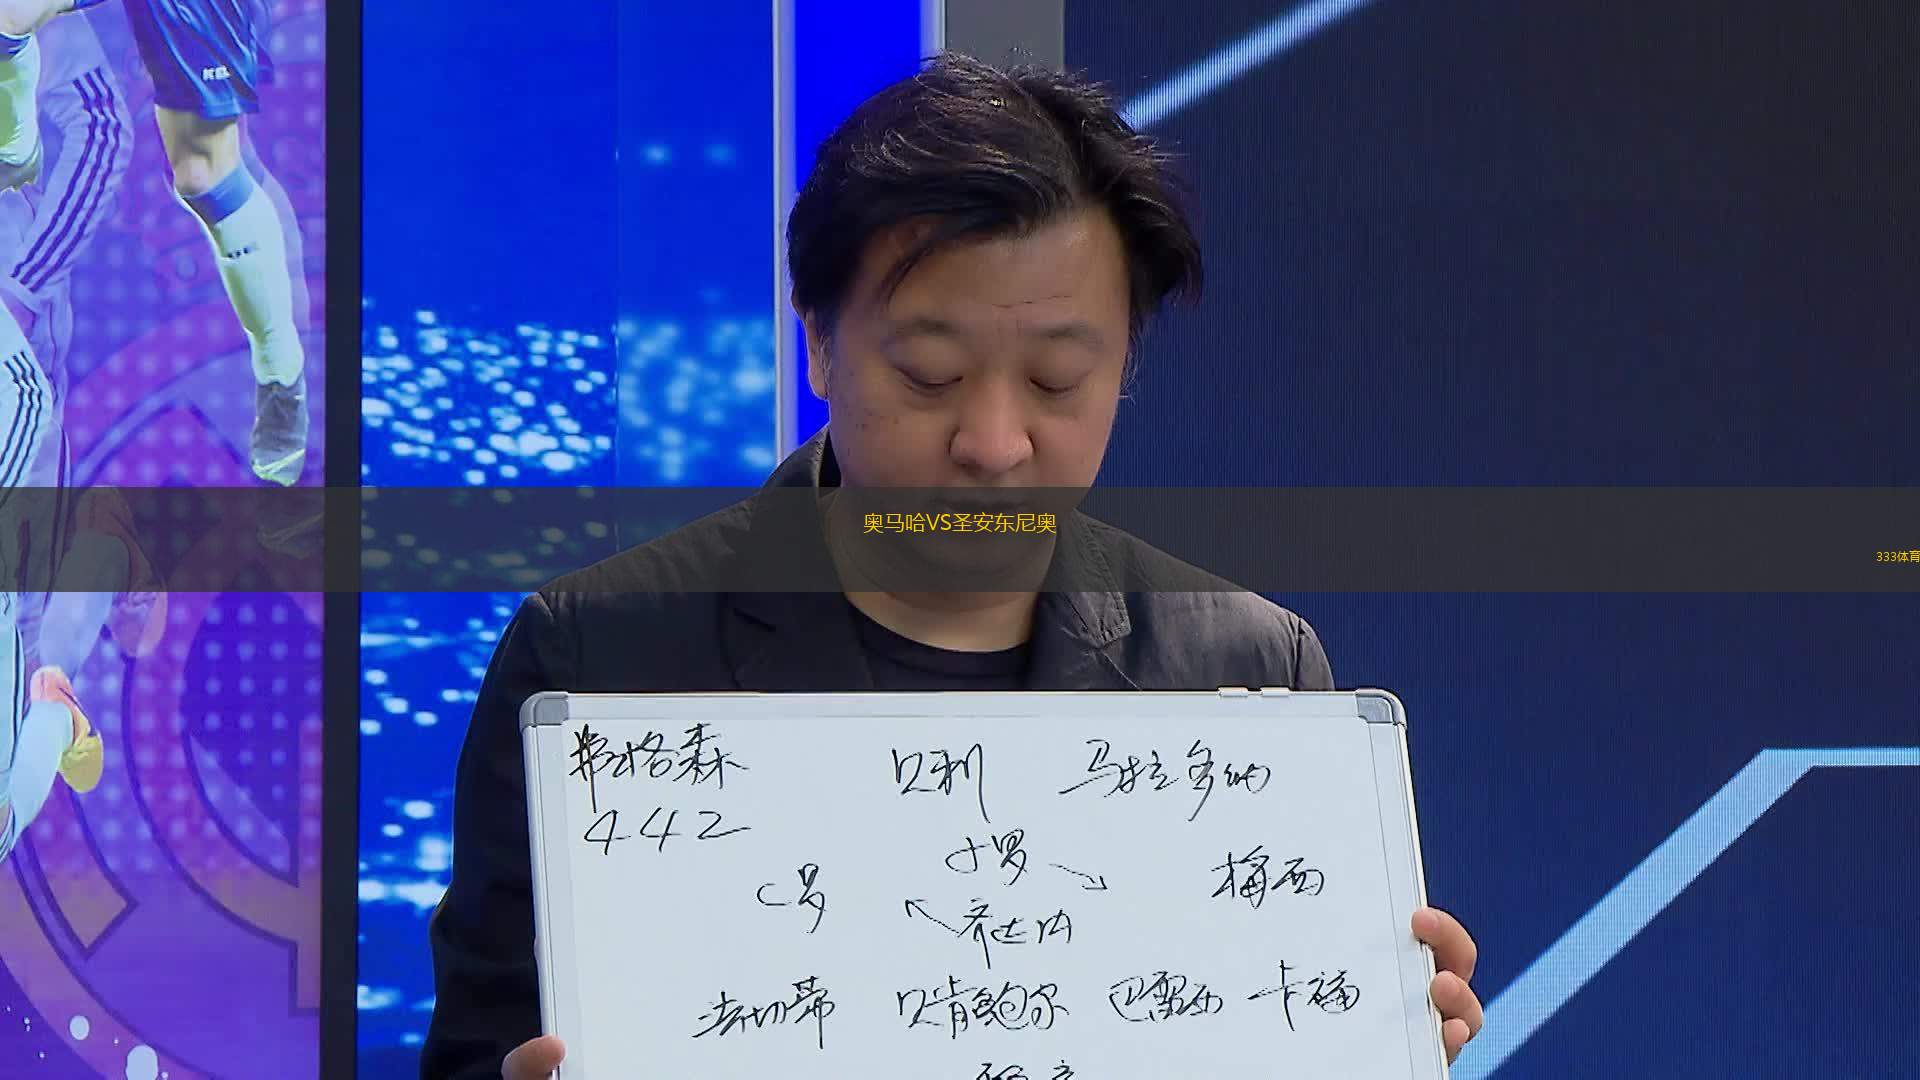 KEL
奥马哈VS圣安东尼奥
333体育
弗格森 贝利 马拉多纳
442
小罗
C罗 梅西
齐达内
法切蒂 贝肯鲍尔 巴雷西 卡福